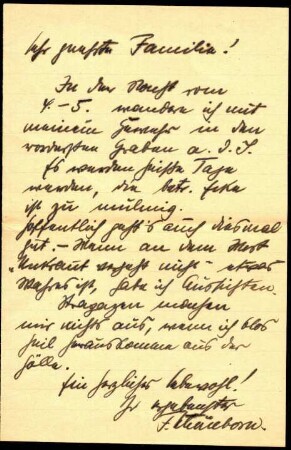 Sehr geehrte Familie!
In der Nacht vom
4.–5. wandere ich mit
meinem Gewehr in den
vordersten Graben a. d. S.
Es werden heiße Tage
werden, die betr. Ecke
ist zu mulmig.
Hoffentlich geht's auch diesmal
gut. – Wenn an dem Wort
"Unkraut vergeht nicht" etwas
Wahres ist, habe ich Aussichten.
Strapazen machen
mir nichts aus, wenn ich blos
heil herauskomme aus der
Hölle.
Ein herzliches Lebewohl!
Ihr ergebenster